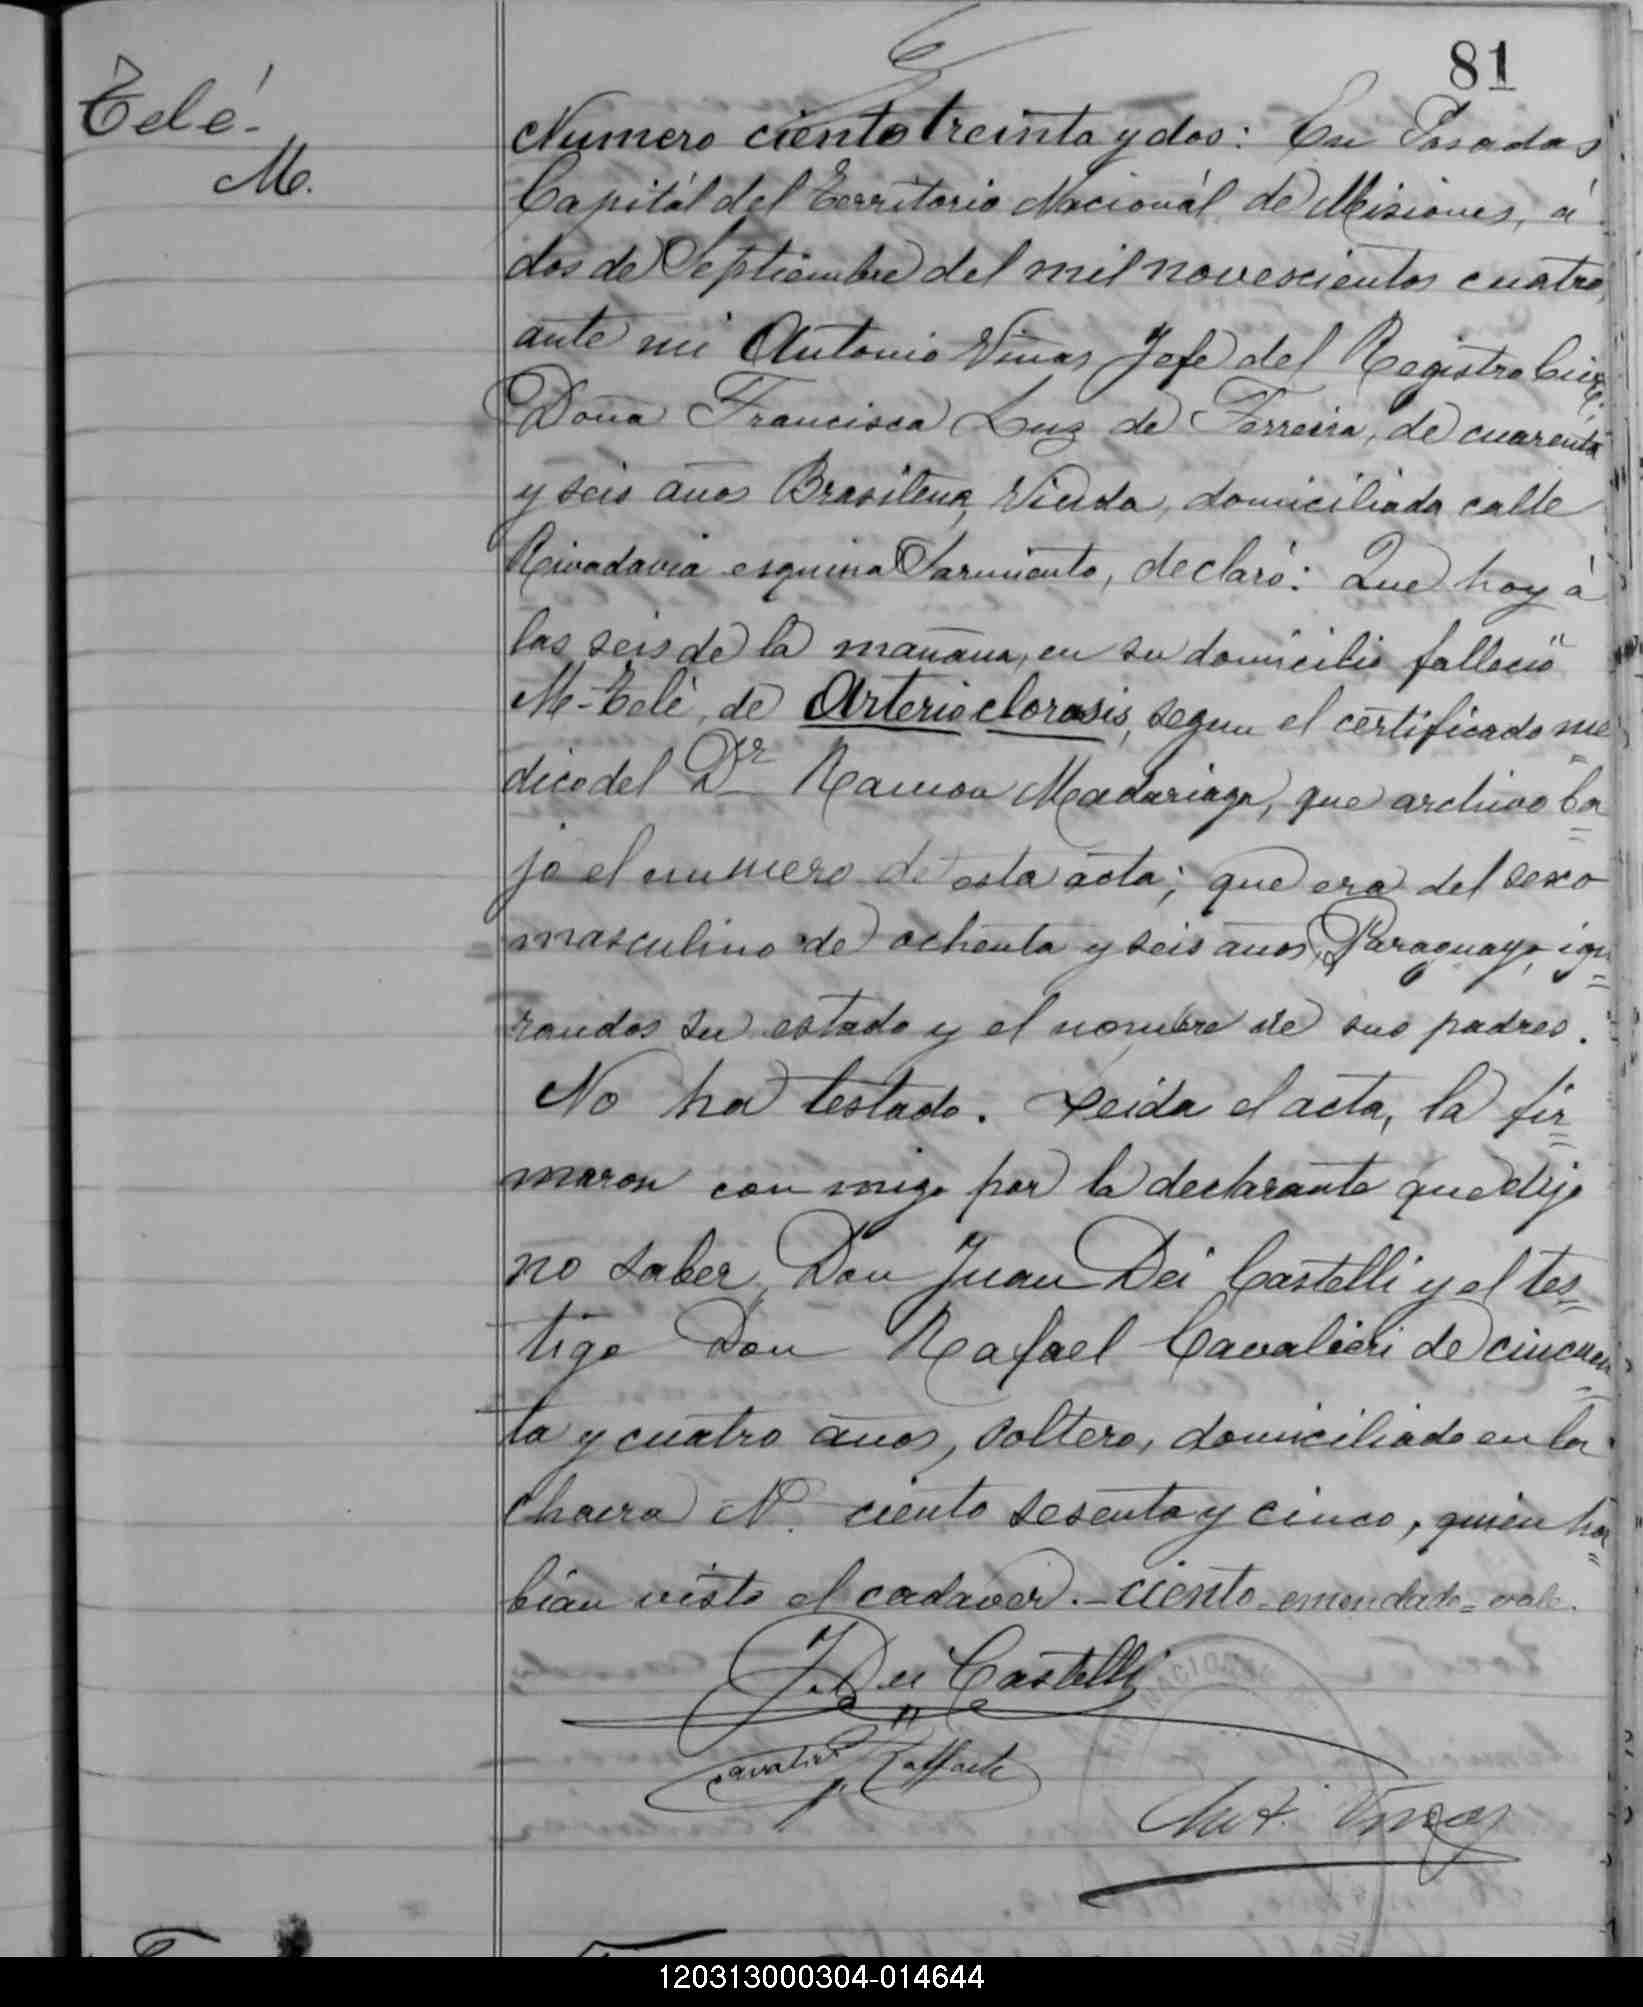 81
Telé.
M.
Numero ciento treinta y dos: En Posadas
Capitál del Território Nacionál de Misiones, á
dos de Septiembre del mil novescientos cuatro,
ante mi Antonio Viñas Jefe del Registro Civil,
Doña Francisca Luz de Ferreira, de cuarenta
y seis años Brasilena, Viuda, domiciliada calle
Rivadavia esquina Sarmiento, declaró: Que hoy á
las seis de la mañana, en su domicilio falleció
M-Telé, de Arterioclorosis, segun el certificado me
dico del Dr Ramon Madariaga, que archivo ba
jo el numero de esta acta; que era del sexo
masculino de ochenta y seis años, Paraguayo, igno
randos su estado y el nombre de sus padres.
No ha testado. Leida el acta, la fir
maron con migo por la declarante que dijo
no saber, Don Juan Dei Castelli y el tes
tigo Don Rafael Cavalieri de cincuen
ta y cuatro años, soltero, domiciliado en la
chacra N. ciento sesenta y cinco, quien ha
bian visto el cadaver.- ciento-emendado=vale.
J. Dei Castelli
Cavalieri Raffaele
Ant. Viñas
120313000304-014644